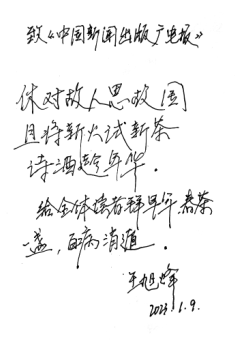 致《中国新闻出版广电报》
休对故人思故国
且将新火试新茶
诗酒趁年华.
给全体读者拜早年 春茶
一盏, 百病消遁.
王旭烽
2023.1.9.